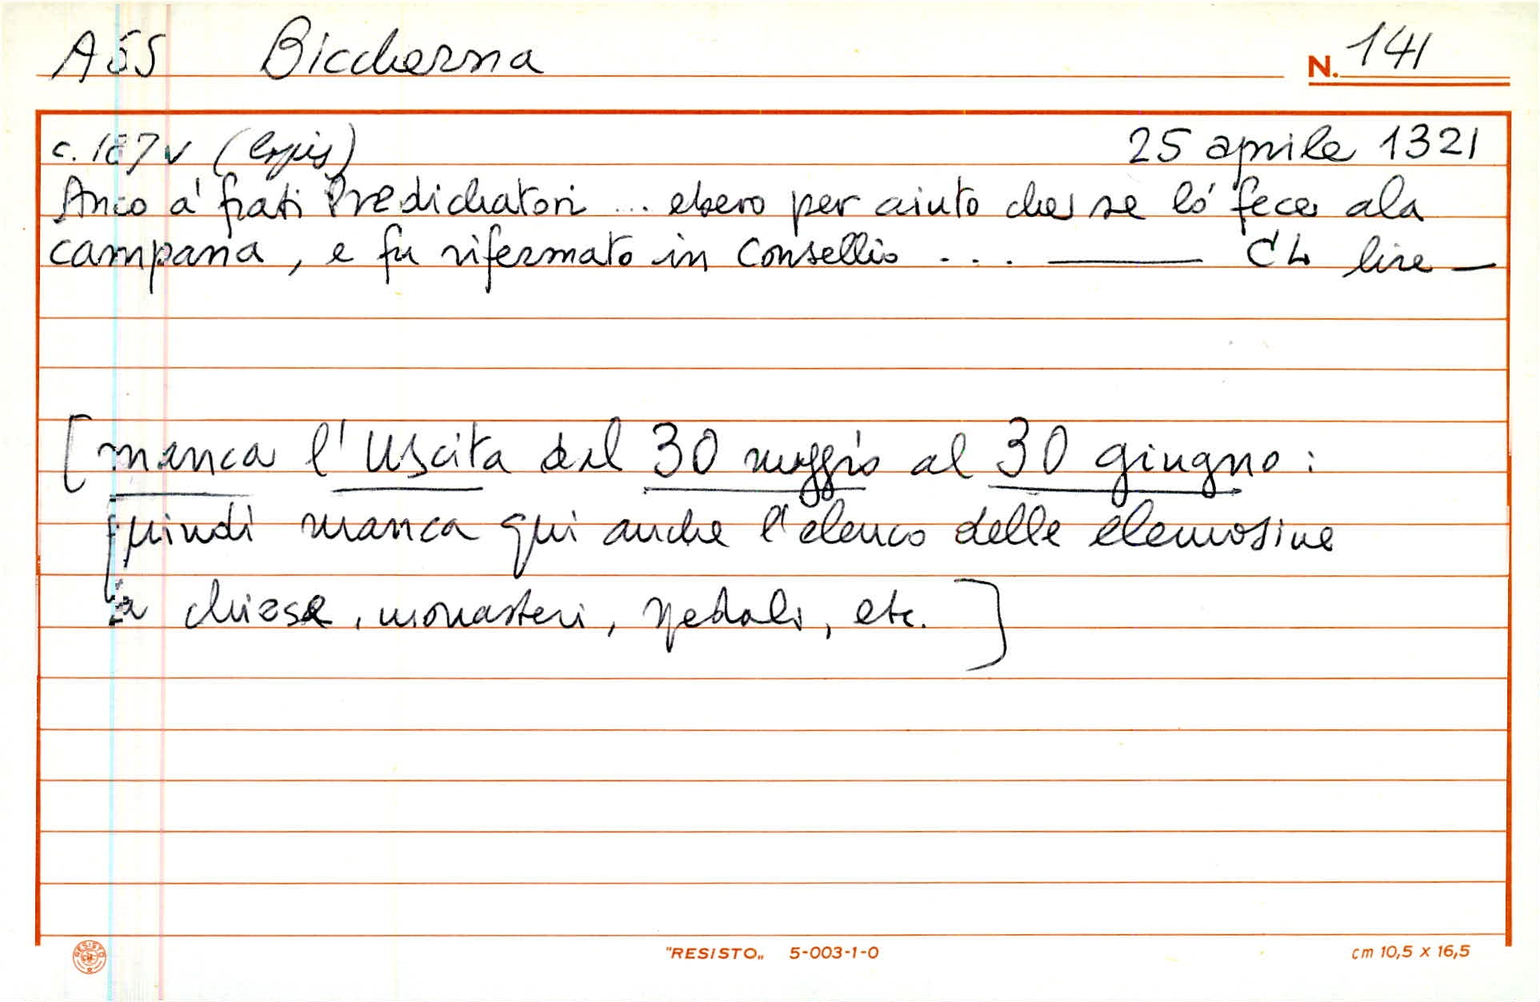 ASS Biccherna N. 141
c. 187v 25 aprile 1321
Anco a' frati Predichatori ... ebero per aiuto che se lo' fece ala
campana, e fu rifermato in Consellio . . . ——— CL lire —
[manca l'Uscita dal 30 maggio al 30 giugno :
quindi manca qui anche l'elenco delle elemosine
a chiese, monasteri, spedali, etc. ]
"RESISTO„ 5-003-1-0 cm 10,5 x 16,5